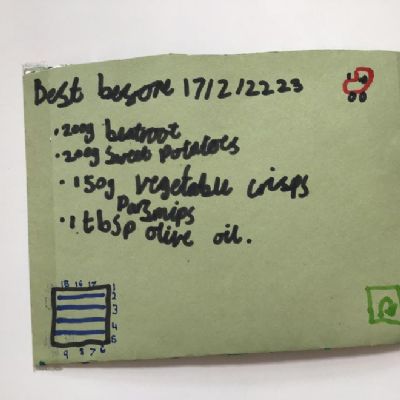 Best before 17/2/2223
• 200g beatroot
• 200g Sweet Potatoes
• 150g vegetable crisps
Parsnips
• 1 tbsp olive oil.
15 16 17 1
2
3
4
5
9 8 7 6